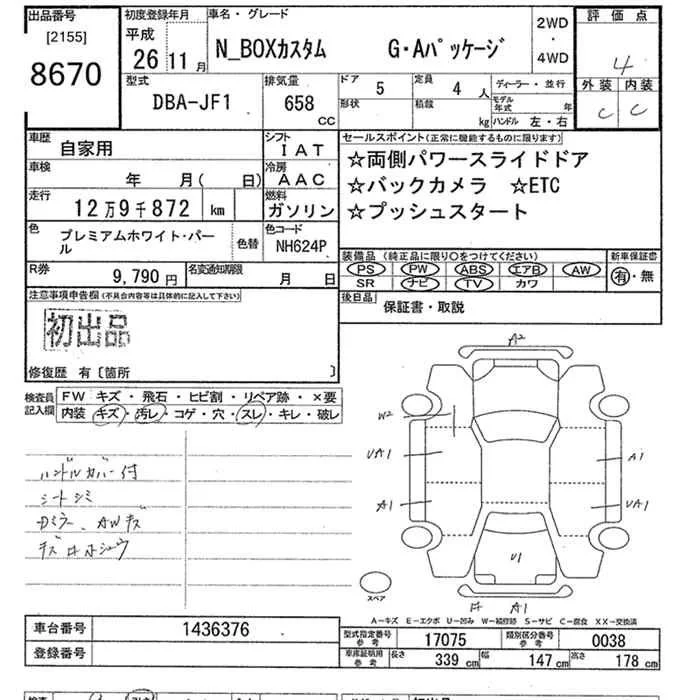 出品番号
[2155]
8670
初度登録年月
平成
26 11月
車名・グレード
N_BOXカスタム G・Aパッケージ
2WD
・
4WD
評価点
4
外装 内装
C C
型式
DBA-JF1
排気量
658 CC
ドア 5
定員 4 人
形状
積載 kg
ディーラー・並行
モデル年式 年
ハンドル 左・右
車歴 自家用
シフト IAT
車検 年 月( 日)
冷房 AAC
走行 12万9千872 km
燃料 ガソリン
色 プレミアムホワイト・パール
色替
色コード NH624P
R券 9,790円
名変通知期限 月 日
セールスポイント(正常に機能するものに限ります)
☆両側パワースライドドア
☆バックカメラ ☆ETC
☆プッシュスタート
装備品 (純正品に限り○をつけてください)
PS PW ABS エアB AW
SR ナビ TV カワ
新車保証書
有・無
後日品 保証書・取説
注意事項申告欄(不具合内容等は具体的に記入して下さい)
初出品
修復歴 有〔箇所 〕
検査員記入欄
FW キズ・飛石・ヒビ割・リペア跡・×要
内装 キズ・汚レ・コゲ・穴・スレ・キレ・破レ
ハンドルカバー付
シートシミ
Dミラー、AWキズ
A2
W2
UA1
A1
A1
UA1
U1
A1
スペア
A-キズ E-エクボ U-凹み W-補修跡 S-サビ C-腐食 XX-交換済
車台番号 1436376
登録番号
型式指定番号参考 17075
類別区分番号参考 0038
車庫証明用参考 長さ 339 幅 147 高さ 178 cm